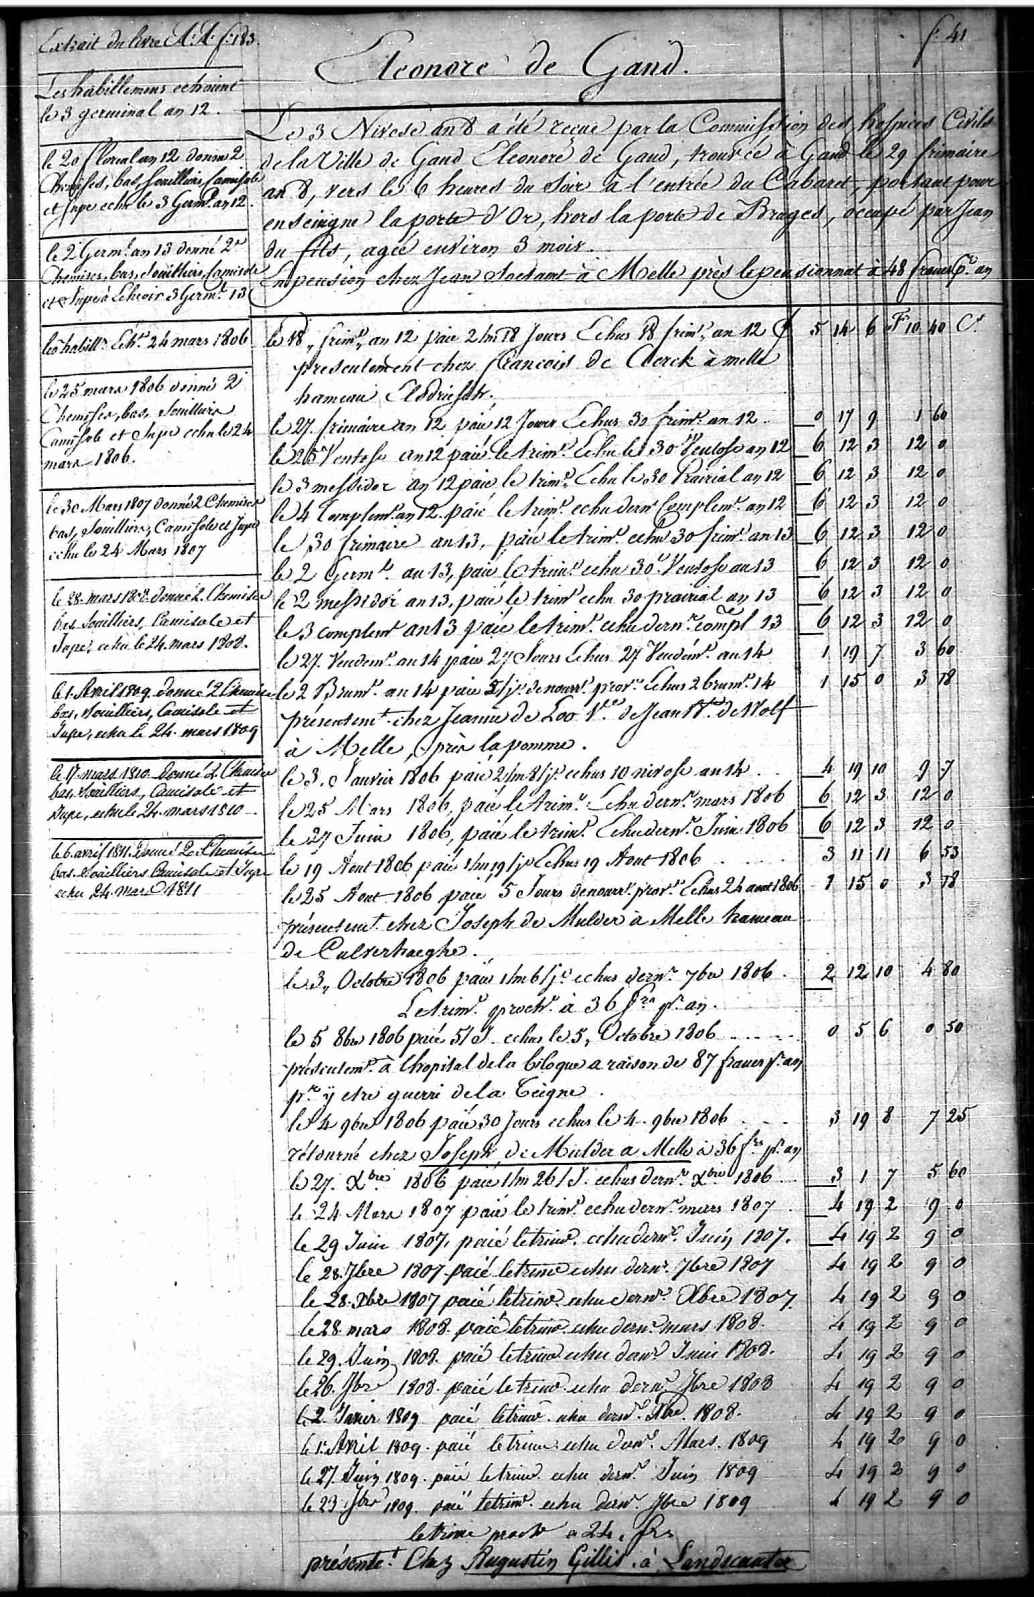 Extrait du livre A: A. f: 183
f: 41
Eleonore de Gand.
Les habillemens echoient
le 3 germinal an 12.
le 20 floreal an 12 donné 2
Chemises, bas, souilliers, Camisole
et Jupe echu le 3 Germ.l an 12.
le 2 Germ.l an 13 donné 2
Chemises, bas, Souilliers, Camisole
et Jupe à Echeoir 3 Germ.l 13
les habill.s Ech.s 24 mars 1806
le 25 mars 1806 donné 2
Chemises, bas, Souilliers
Camisole et Jupe echu le 24
mars 1806.
le 30 Mars 1807 donné 2 Chemises
bas, Souilliers, Camisole et Jupe
echu le 24 Mars 1807
le 28 mars 1808 donné 2 Chemises
bas Souilliers, Camisole et
Jupe, echu le 24 mars 1808.
le 1 Avril 1809 donné 2 Chemises
bas, Souilliers, Camisole et
Jupe, echu le 24 mars 1809
le 17 mars 1810 donné 2 Chemises
bas, Souilliers, Camisole et
Jupe, echu le 24 mars 1810
le 6 avril 1811 donné 2 Chemises
bas Souilliers Camisole et Jupe
echu 24 mars 1811
Le 3 Nivose an 8 a été reçue par la Commission des hospices Civils
de la Ville de Gand Eleonore de Gand, trouvée à Gand le 29 frimaire
an 8, vers les 6 heures du Soir à l'entrée du Cabaret, portant pour
enseigne la porte d'Or, hors la porte de Bruges, occupé par Jean
du fils, agée environ 3 mois.
En pension chez Jean Soetamt à Melle près le pensionnat à 48 francs p.r an
le 18 frim.e an 12 paié 2 m 18 Jours Echus 18 frim.e an 12 5 14 6 F 10 40 C.s
presentement chez francois de Clerck à melle
hameau
le 27. frimaire an 12 paié 12 Jours Echus 30 frim.e an 12. 0 17 9 1 60
le 25 Ventose an 12 paié le trim.e Echu le 30 Ventose an 12 6 12 3 12 0
le 3 messidor an 12 paié le trim.e Echu le 30 Prairial an 12 6 12 3 12 0
le 4 Complem.e an 12 paié le trim.e echu dern.r Complem.e an 12 6 12 3 12 0
le 30 frimaire an 13, paié le trim.e echu 30 frim.e an 13 6 12 3 12 0
le 2 Germ.l an 13, paié le trim.e echu 30 Ventose an 13 6 12 3 12 0
le 2 messidor an 13, paié le trim.e echu 30 prairial an 13 6 12 3 12 0
le 3 complem.e an 13 paié le trim.e echu dern.r compl 13 6 12 3 12 0
le 27. Vendem.e an 14 paié 27 Jours Echus 27 Vendem.e an 14 1 19 7 3 60
le 2 Brum.e an 14 paié 5 j.s de nourr.e prov.e echus 2 brum.e 14 1 15 0 3 18
présentem.t chez Jeanne de Loo V.ve de Jean B.te de Wolf
à Melle, près la pomme.
le 3. Janvier 1806 paié 2 m 8 j.s echus 10 nivose an 14 4 19 10 9 7
le 25 Mars 1806, paié le trim.e Echu dern.r mars 1806 6 12 3 12 0
le 27 Juin 1806, paié le trim.e Echu dern.r Juin 1806 6 12 3 12 0
le 19 Aout 1806 paié 1 m 19 j.s Echus 19 Aout 1806 3 11 11 6 53
le 25 Aout 1806 paié 5 Jours de nourr.e prov.e Echus 24 aout 1806 1 15 0 3 18
présentem.t chez Joseph de Mulder à Melle hameau
de Culverhaeghe.
le 3, Octobre 1806 paié 1 m 6 j.s echus dern.r 7bre 1806 2 12 10 4 80
Le trim.e proch.n à 36 frs p.r an.
le 5 8bre 1806 paié 5 J. echus le 5, Octobre 1806 0 5 6 0 50
présentem.t à l'hopital de la biloque a raison de 87 francs p.r an
p.r y etre gueri de la Teigne.
le 4 9bre 1806 paié 30 Jours echus le 4 9bre 1806 3 19 8 7 25
rétourné chez Joseph de Mulder a Melle à 36 frs p.r an
le 27. Xbre 1806 paié 1 m 26 J. echus dern.r Xbre 1806 3 1 7 5 60
le 24 Mars 1807 paié le trim.e echu dern.r mars 1807 4 19 2 9 0
le 29 Juin 1807, paié le trim.e echu dern.r Juin 1807. 4 19 2 9 0
le 28. 7bre 1807 paié le trim.e echu dern.r 7bre 1807 4 19 2 9 0
le 28. Xbre 1807 paié le trim.e echu dern.r Xbre 1807 4 19 2 9 0
le 28 mars 1808. paié le trim.e echu dern.r mars 1808. 4 19 2 9 0
le 29. Juin 1808. paié le trim.e echu dern.r Juin 1808. 4 19 2 9 0
le 26. 7bre 1808. paié le trim.e echu dern.r 7bre 1808 4 19 2 9 0
le 2. Janvier 1809 paié le trim.e echu dern.r Xbre 1808. 4 19 2 9 0
le 1.r Avril 1809. paié le trim.e echu dern.r Mars. 1809 4 19 2 9 0
le 27. Juin 1809. paié le trim.e echu dern.r Juin 1809 4 19 2 9 0
le 23 7bre 1809. paié le trim.e echu dern.r 7bre 1809 4 19 2 9 0
le trime proch.n a 24. frs
présente.t Chez Augustin Gillis. à Landscauter